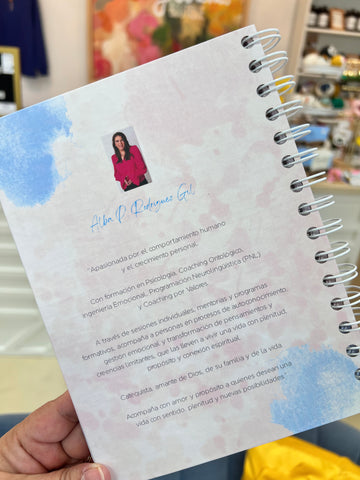 Alba D. Rodríguez Gil
"Apasionada por el comportamiento humano
y el crecimiento personal.
Con formación en Psicología, Coaching Ontológico,
Ingeniería Emocional, Programación Neurolingüística (PNL)
y Coaching por Valores.
A través de sesiones individuales, mentorías y programas
formativos, acompaña a personas en procesos de autoconocimiento,
gestión emocional, y transformación de pensamientos y
creencias limitantes, que las lleven a vivir una vida con plenitud,
propósito y conexión espiritual.
Catequista, amante de Dios, de su familia y de la vida.
Acompaña con amor y propósito a quienes desean una
vida con sentido, plenitud y nuevas posibilidades."